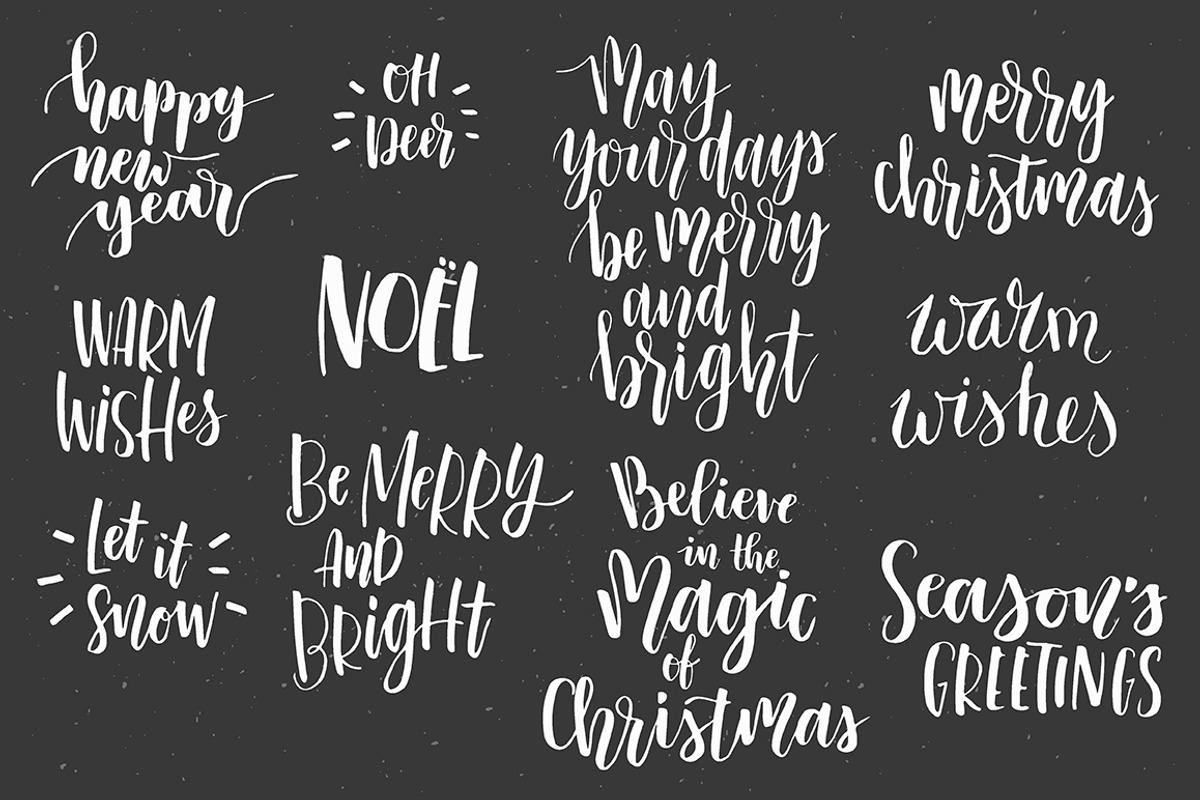 happy
new
year
OH
Deer
May
your days
be merry
and
bright
merry
christmas
WARM
WiSHes
NOËL
warm
wishes
Let it
snow
Be MeRRY
AND
BRigHt
Believe
in the
Magic
of
Christmas
Season's
GREETINGS